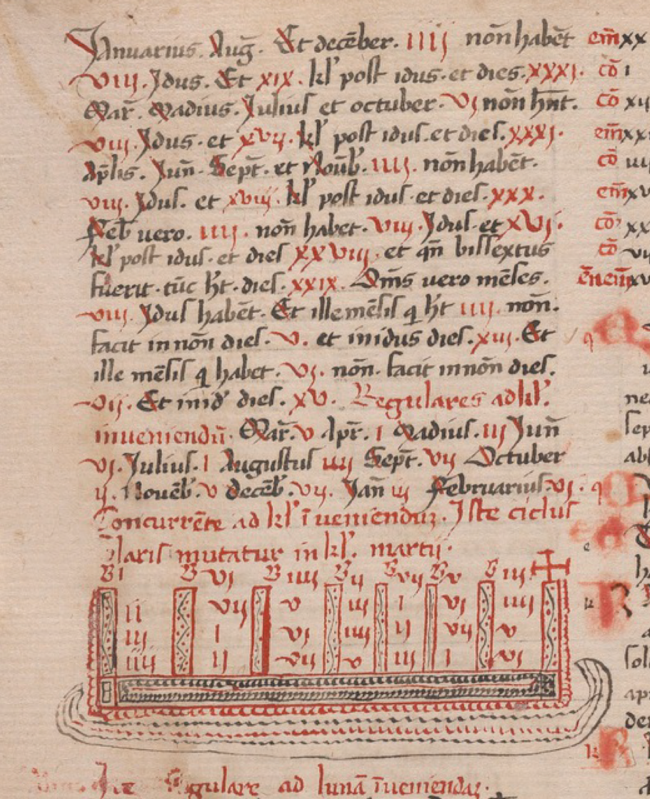 Januarius. Aug̅. Et decēber. IIII nōn habēt
VIII. Idus. Et XIX. kl' post idus. et dies. XXXI.
Mar̅. Madius. Julius et octuber. VI nōn hn̄t.
VIII. Idus. et XVII. kl' post idus. et dies. XXXI.
Ap̄lis. Jun̅. Sept̅. et Nouēb̅. IIII. nōn habēt.
VIII. Idus. et XVIII. kl' post idus et dies. XXX.
Feb̅ uero. IIII. nōn habet. VIII. Idus et XVI.
kl' post idus. et dies XXVIII. et qn̄ bissextus
fuerit. tūc h̄t. dies. XXIX. Om̄s uero mēses.
VIII. Idus habēt. Et ille mēsis q h̄t IIII. nōn.
facit in nōn dies. V. et in idus dies. XIII. Et
ille mēsis q habet. VI. nōn. facit in nōn dies.
VII. Et in id' dies. XV. Regulares ad kl'.
inueniendū. Mar̅. V Apr̅. I Madius. III Jun̅
VI. Julius. I Augustus IIII Sept̅. VII Octuber
II. Nouēb̅. V decēb̅. VII. Jan̅ III februarius. VI.
Concurrētē ad kl' īueniendum. Iste ciclus
solaris mutatur in kl'. martii.
B I B VI B IIII B II B VII B V B III
II VII V IIII I VI IIII
III I VI VII V
IIII II VII V III I
Regulare ad lunā īueniendam.